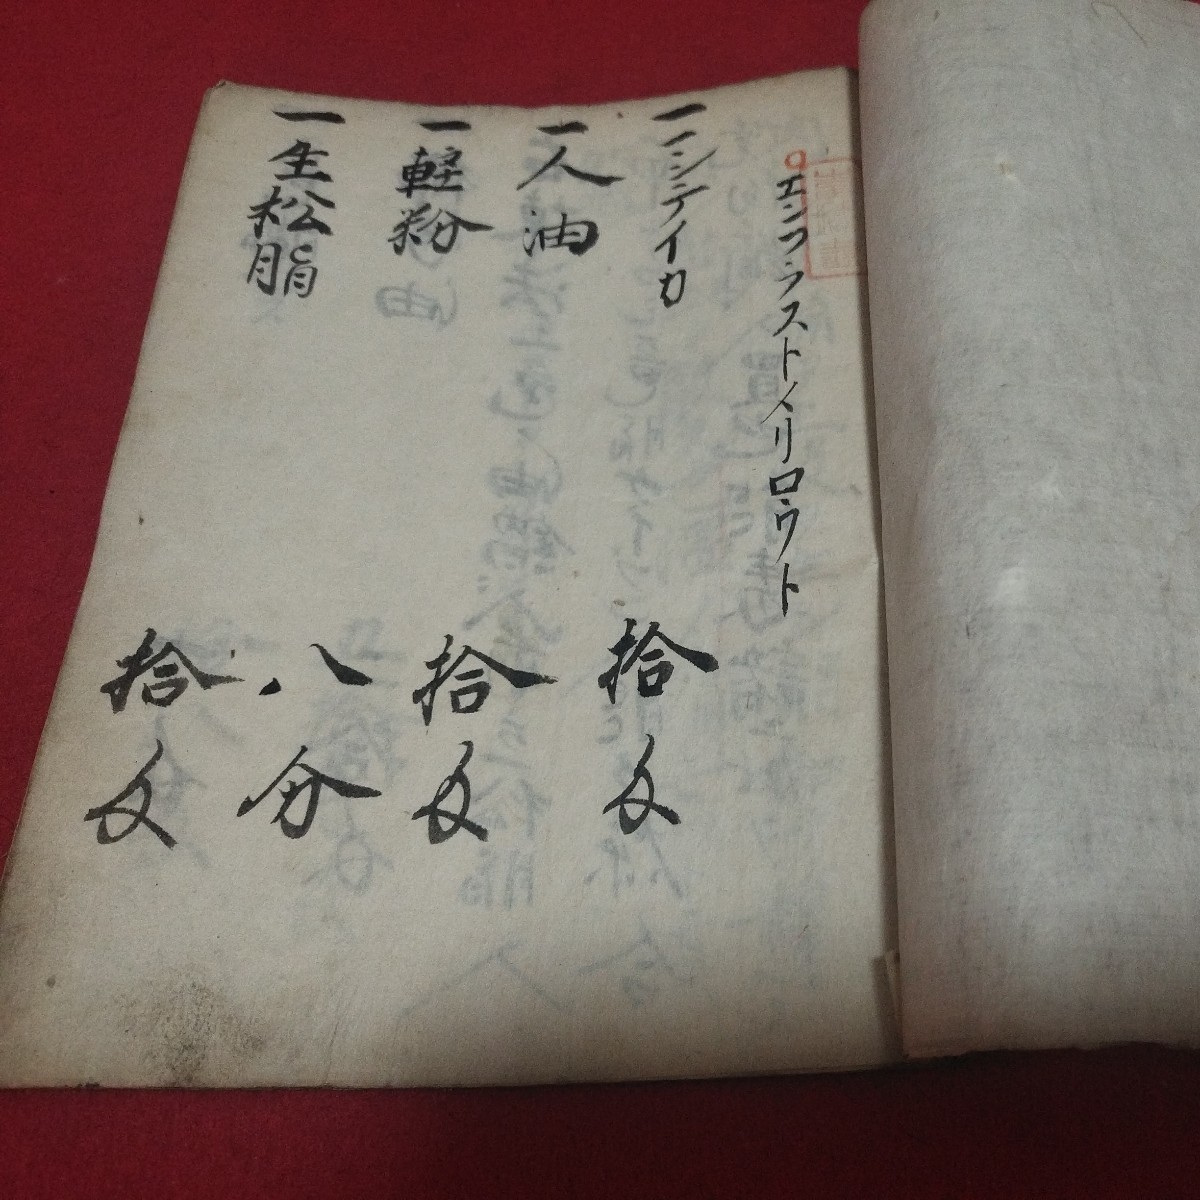 エンフラストメリロウト
一シテイカ 拾匁
一人油 拾匁
一軽粉 八分
一生松脂 拾匁